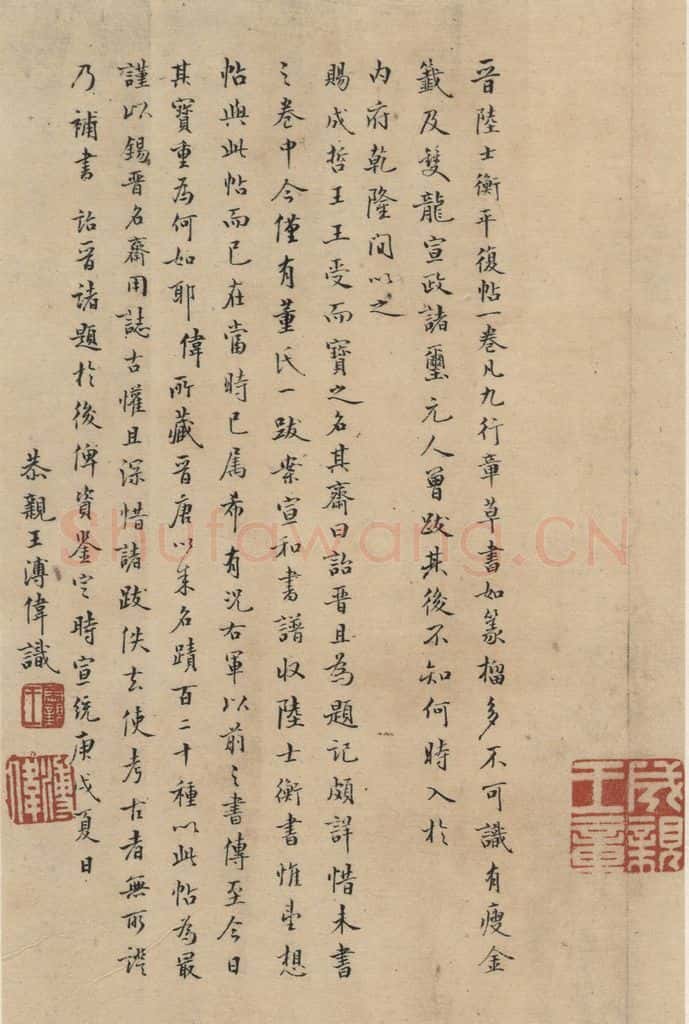 晋陸士衡平復帖一卷凡九行章草書如篆籀多不可識有瘦金
籤及雙龍宣政諸璽元人曾跋其後不知何時入於
內府乾隆間以之
賜成哲王王受而寶之名其齋曰詒晉且為題記頗詳惜未書
之卷中今僅有董氏一跋案宣和書譜收陸士衡書惟望想
帖與此帖而已在當時已屬希有況右軍以前之書傳至今日
其寶重為何如耶偉所藏晉唐以來名蹟百二十種以此帖為最
謹以錫晉名齋用誌古懽且深惜諸跋佚去使考古者無所證
乃補書詒晉諸題於後俾資鑒定時宣統庚戌夏日
恭親王溥偉識
恭親王
溥偉
成親王章
Shufawang.CN